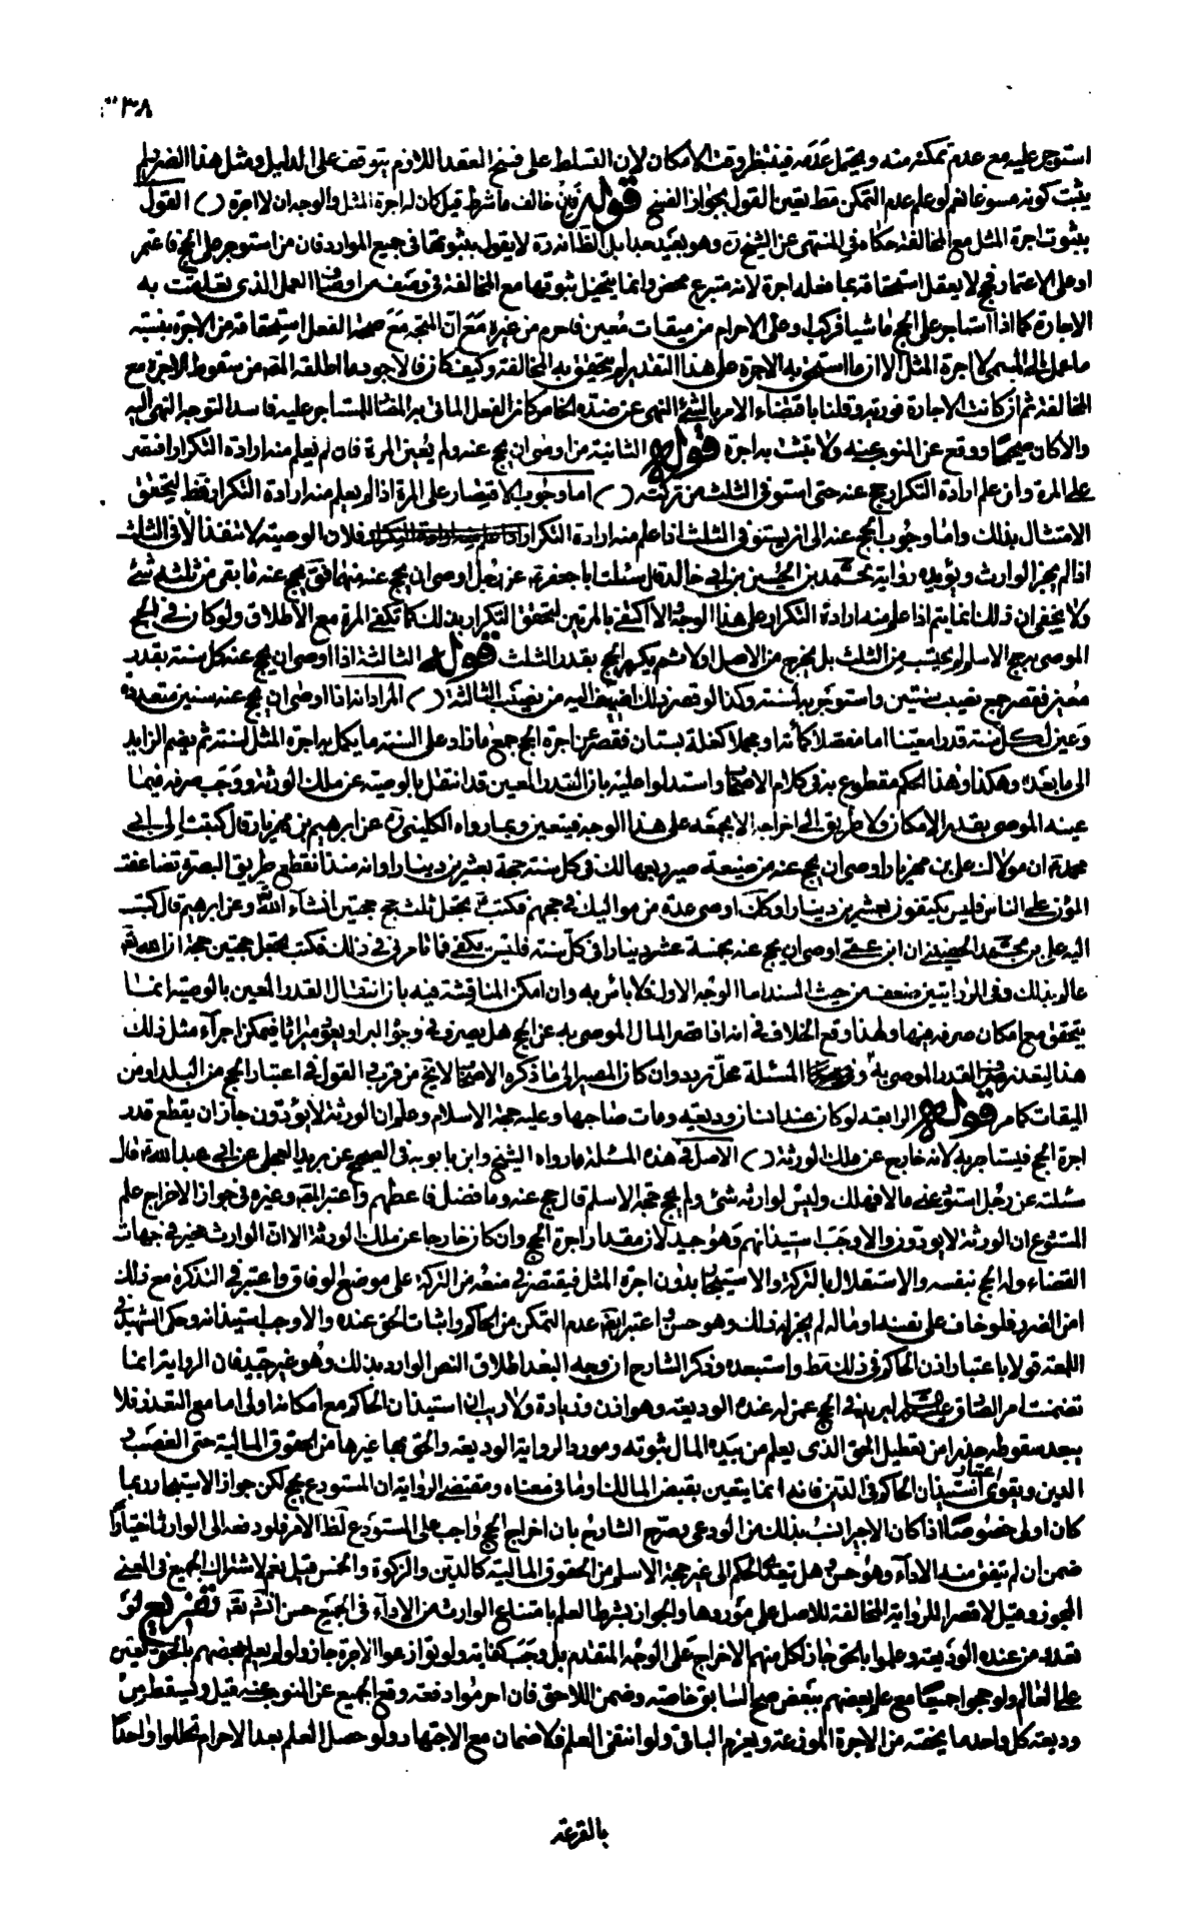 ٣٨
استوجر عليه مع عدم تمكنه منه ويحتمل عدمه فينتظر وقت الامكان لان التسلط على فسخ العقد اللازم يتوقف على الدليل ومثل هذا الضرر لم
يثبت كونه مسوغا نعم لو علم عدم التمكن مط يقين القول بجواز الفسخ قوله فان خالف ما شرط قيل كان له اجرة المثل والوجه ان لا اجرة () القول
بثبوت اجرة المثل مع المخالفة حكاه في المنتهى عن الشيخ ره وهو بعيد جدا بل الظ انه ره لا يقول بثبوتها في جميع الموارد فان من استوجر على الحج فاعتمر
او على الاعتمار فحج لا يعقل استحقاقه بما فعله اجرة لانه متبرع محض وانما يتخيل ثبوتها مع المخالفة في وصف من اوصاف العمل الذي تعلقت به
الاجارة كما اذا استاجر على الحج ماشيا فركب او على الاحرام من ميقات معين فاحرم من غيره مع ان المتجه مع صحة الفعل استحقاقه من الاجرة بنسبة
ما عمل الى المسمى لا اجرة المثل الا ان ما استحق به الاجرة على هذا التقدير لم يتحقق به المخالفة وكيف كان فالاجود ما اطلقه المصـ من سقوط الاجرة مع
المخالفة ثم ان كانت الاجارة فورية وقلنا باقتضاء الامر بالشئ النهي عن ضده الخاص كان الفعل الماتي به المضاد للمستاجر عليه فاسدا لتوجه النهي اليه
والا كان صحيحا ووقع عن المنوب عنه ولا تثبت به اجرة قوله الثانية من اوصى ان يحج عنه ولم يعين المرة فان لم يعلم منه ارادة التكرار اقتصر
على المرة وان علم ارادة التكرار حج عنه حتى استوفى الثلث من تركته () اما وجوب الاقتصار على المرة اذا لم يعلم منه ارادة التكرار فظ لتحقق
الامتثال بذلك واما وجوب الحج عنه الى ان يستوفى الثلث اذا علم منه ارادة التكرار فلان الوصية لا تنفذ الا في الثلث
اذا لم يجز الوارث ويؤيده رواية محمد بن الحسين بن ابي خالد قال سئلت ابا جعفر عن رجل اوصى ان يحج عنه مبهما فق يحج عنه ما بقى من ثلثه شئ
ولا يخفى ان ذلك انما يتم اذا علم منه ارادة التكرار على هذا الوجه والا اكتفى بالمرتين لتحقق التكرار بذلك كما تكفي المرة مع الاطلاق ولو كان في الحج
الموصى به حج الاسلام لم يحتسب من الثلث بل يخرج من الاصل اولا ثم يكرر الحج بقدر الثلث قوله الثالثة اذا اوصى ان يحج عنه كل سنة بقدر
معين فقصر جمع نصيب سنتين واستوجر به لسنة وكذا لو قصر ذلك اضيف اليه من نصيب الثالثة () المراد انه اذا اوصى ان يحج عنه سنين متعددة
وعين لكل سنة قدرا معينا اما مفصلا كمائة او مجملا كغلة بستان فقصر عن اجرة الحج جمع ما زاد على السنة ما يكمل به اجرة المثل لسنة ثم يضم الزايد
الى ما بعده وهكذا وهذا الحكم مقطوع به في كلام الاصحاب واستدلوا عليه بان القدر المعين قد انتقل بالوصية عن ملك الورثة ووجب صرفه فيما
عينه الموصى بقدر الامكان ولا طريق الى اخراجه الا بجمعه على هذا الوجه فيتعين وبما رواه الكليني ره عن ابرهيم بن مهزيار قال كتبت الى ابي
محمد ع ان مولاك علي بن مهزيار اوصى ان يحج عنه من ضيعة صير ربعها لك في كل سنة حجة بعشرين دينارا وانه منذ انقطع طريق البصرة تضاعفت
المؤن على الناس فليس يكتفون بعشرين دينارا وكذلك اوصى عدة من مواليك في حجهم فكتب ع يجعل ثلث حجج حجتين انشاء الله وعن ابرهيم قال كتب
اليه علي بن محمد الحضيني ان ابن عمي اوصى ان يحج عنه بخمسة عشر دينارا في كل سنة فليس يكفي فما تامرني في ذلك فكتب يجعل حجتين حجة ان الله تعالى
عالم بذلك وفي الروايتين ضعف من حيث السند اما الوجه الاول فلا باس به وان امكن المناقشة فيه بان انتقال القدر المعين بالوصية انما
يتحقق مع امكان صرفه فيها ولهذا وقع الخلاف في انه اذا قصر المال الموصى به عن الحج هل يصرف في وجوه البر او يعود ميراثا فيمكن اجراء مثل ذلك
هذا لتعذر صرف القدر الموصى به المسئلة محل تردد وان كان المصير الى ما ذكره الاصحاب لا يخ من قرب في القول في اعتبار الحج من البلد او من
الميقات كما مر قوله الرابعة لو كان عند انسان وديعة ومات صاحبها وعليه حجة الاسلام وعلم ان الورثة لا يؤدون جاز ان يقطع قدر
اجرة الحج فيستاجر به لانه خارج عن ملك الورثة () الاصل في هذه المسئلة ما رواه الشيخ وابن بابويه في الصحيح عن بريد العجلي عن ابي عبد الله قال
سئلته عن رجل استودعني مالا فهلك وليس لوارثه شئ ولم يحج حجة الاسلام قال حج عنه وما فضل فاعطهم واعتبر المصـ وغيره في جواز الاخراج علم
المستودع ان الورثة لا يؤدون والا وجب استيذانهم وهو جيد لان مقدار اجرة الحج وان كان خارجا عن ملك الورثة الا ان الوارث مخير في جهات
القضاء وله الحج بنفسه والاستقلال بالتركة والاستيجار بدون اجرة المثل فيقتصر في منعه من التركة على موضع الوفاق واعتبر في التذكرة مع ذلك
امن الضرر فلو خاف على نفسه او ماله لم يجز له ذلك وهو حسن واعتبر ايضا عدم التمكن من الحاكم واثبات الحق عنده والا وجب استيذانه وحكى الشهيد في
اللمعة قولا باعتبار اذن الحاكم في ذلك مط واستبعده وذكر الشارح ان وجه البعد اطلاق النص الوارد بذلك وهو غير جيد فان الرواية انما
تضمنت امر الصادق لبريد في الحج عمن له عنده الوديعة وهو اذن وزيادة ولا ريب ان استيذان الحاكم مع امكانه اولى اما مع التعذر فلا
يبعد سقوطه حذرا من تعطيل الحق الذي يعلم من بيده المال ثبوته ومورد الرواية الوديعة والحق بها غيرها من الحقوق المالية حتى الغصب و
الدين ويقوى اعتبار استيذان الحاكم في الدين فانه انما يتعين بقبض المالك او ما في معناه ومقتضى الرواية ان المستودع يحج لكن جواز الاستيجار ربما
كان اولى خصوصا اذا كان الاجير انسب بذلك من الودعي وصرح الشارح بان اخراج الحج واجب على المستودع لظ الامر فلو دفعه الى الوارث اختيارا
ضمن ان لم يتفق منه الاداء وهو حسن وهل يتعدى الحكم الى غير حجة الاسلام من الحقوق المالية كالدين والزكوة والخمس قيل نعم لاشتراك الجميع في المعنى
المجوز وقيل لا قصرا للرواية المخالفة للاصل على موردها والجواز بشرط العلم بامتناع الوارث من الاداء في الجميع حسن انش تع تفريع لو
تعدد من عنده الوديعة وعلموا بالحق جاز لكل منهم الاخراج على الوجه المتقدم بل وجب كفاية ولو توازعوا الاجرة جاز ولو لم يعلم بعضهم بالحق تعين
على العالم ولو حجوا جميعا مع علم بعضهم ببعض صح السابق خاصة وضمن اللاحق فان احرموا دفعة وقع الجميع عن المنوب عنه قيل ويسقط من
وديعة كل واحد ما يخصه من الاجرة الموزعة ويغرم الباقي ولو انتفى العلم فلا ضمان مع الاجتهاد ولو حصل العلم بعد الاحرام تحللوا واحدا
بالقرعة